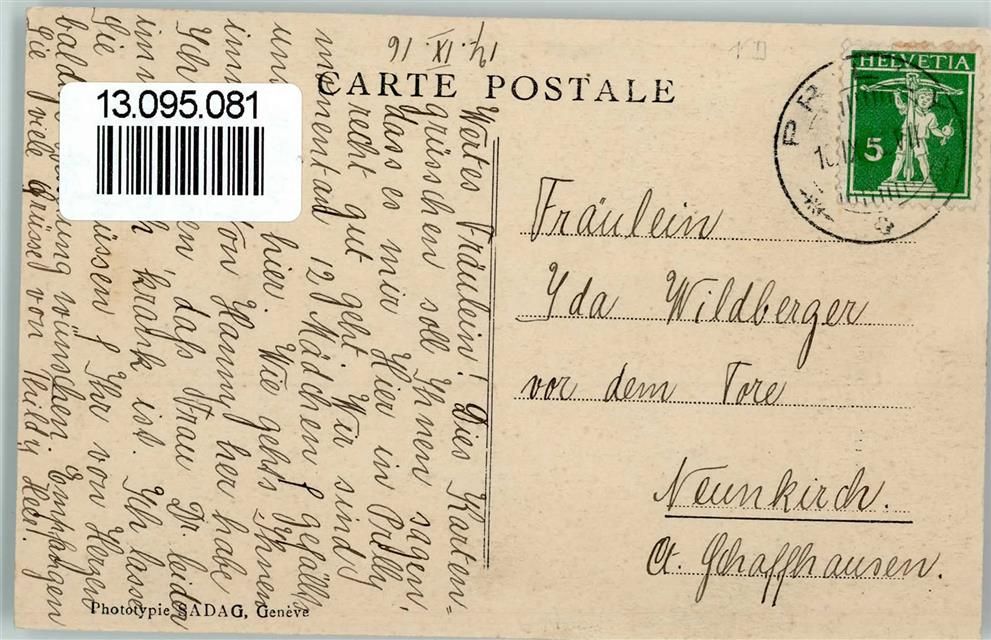 14. IX. 16
CARTE POSTALE
HELVETIA
5
13.095.081
Wertes Fräulein! Dies Karten-
grüsschen soll Ihnen sagen,
dass es mir Hier in Pully
recht gut geht. Wir sind
momentan 12 Mädchen
hier. Wie gehts Ihnen
immer? Von Hammy her habe
Ich, daß Frau Dr. leider
immer krank ist. Ich lasse
Sie grüssen & Ihr von Herzen
baldige wünschen. Empfangen
Sie viele Grüsse von
Fräulein
Yda Wildberger
vor dem Tore
Neunkirch.
Ct. Schaffhausen.
Phototypie SADAG, Genève